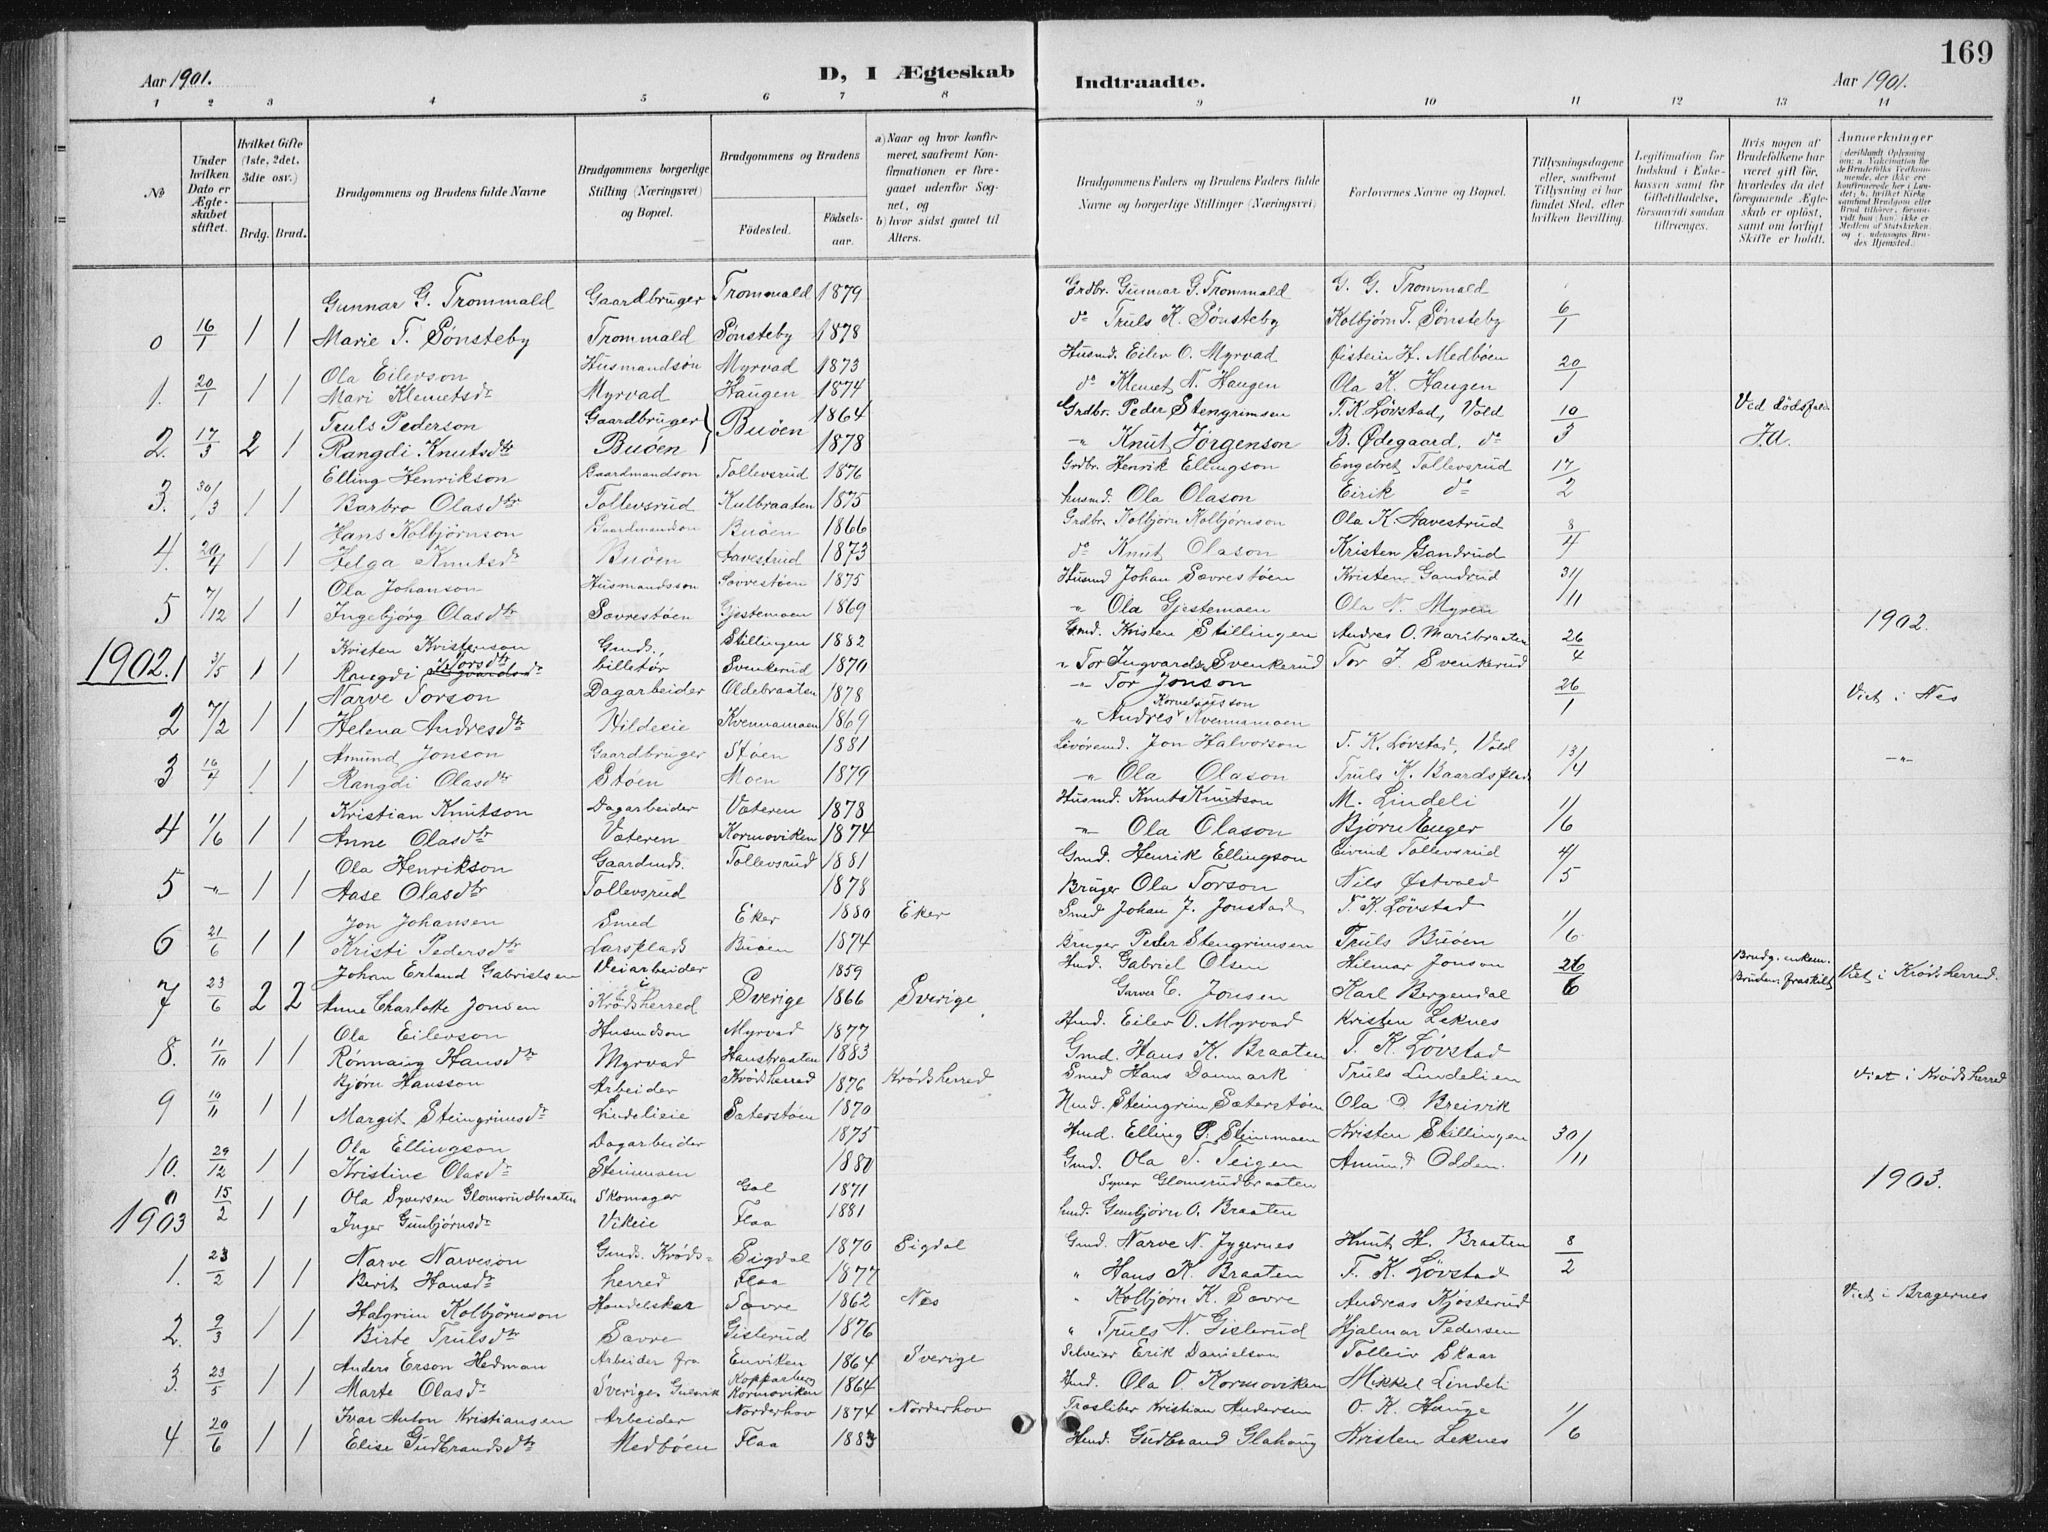 169
Aar 1901.
D, I Ægteskab
Indtraadte.
Aar 1901.
1 2 3 4 5 6 7 8 9 10 11 12 13 14
No
Under hvilken Dato er Ægteskabet stiftet.
Hvilket Gifte (1ste, 2det, 3die osv.)
Brdg. Brud.
Brudgommens og Brudens fulde Navne
Brudgommens borgerlige Stilling (Næringsvei) og Bopæl.
Brudgommens og Brudens
Fødested.
Fødselsaar.
a) Naar og hvor konfirmeret, saafremt Konfirmationen er foregaaet udenfor Sognet, og
b) hvor sidst gaaet til Alters.
Brudgommens Faders og Brudens Faders fulde Navne og borgerlige Stillinger (Næringsvei)
Forlovernes Navne og Bopæl.
Tillysningsdagene eller, saafremt Tillysning ei har fundet Sted, efter hvilken Bevilling.
Legitimation for Indskud i Enkekassen samt for Giftetilladelse, forsaavidt saadan tiltrænges.
Hvis nogen af Brudefolkene har været gift før, hvorledes da det foregaaende Ægteskab er opløst, samt om lovligt Skifte er holdt.
Anmerkninger (deriblandt Oplysning om: a. Vakcination for de Brudefolks Vedkommende, der ikke ere konfirmerede her i Landet; b. hvilket Kirkesamfund Brudgom eller Brud tilhører, forsaavidt han (hun) ikke er Medlem af Statskirken, og c. udensogns Brudes Hjemsted.)
Gunnar G. Trommald Gaardbruger Trommald 1879 Grdbr. Gunnar G. Trommald G. G. Trommald
0 16/1 1 1 Marie T. Sønsteby Trommald Sønsteby 1878 do Truls K. Sønsteby Kolbjørn T. Sønsteby 6/1
Ola Eilevson Husmandsøn Myrvad 1873 Husmd. Eilev O. Myrvad Øistein H. Medbøen
1. 20/1 1 1 Mari Klemetsdr Myrvad Haugen 1874 do Klemet N. Haugen Ola K. Haugen 20/1
Truls Pederson Gaardbruger Buøen 1864 Grdbr. Peder Stengrimsen T. K. Løvstad, Vold 10/3 Ved Dødsfald
2. 17/3 2 1 Rangdi Knutsdtr Buøen 1878 " Knut Jørgenson B. Ødegaard, do Ja.
Elling Henrikson Gaardmandson Tollevsrud 1876 Grdbr. Henrik Ellingson Engebret Tollevsrud
3. 30/3 1 1 Barbro Olasdtr Tollevsrud Kulbraaten 1875 husmd. Ola Olason Eirik do 17/2
Hans Kolbjørnson Gaardmandson Buøen 1866 Grdbr. Kolbjørn Kolbjørnson Ola K. Havestrud
4. 20/4 1 1 Helga Knutsdr Buøen Havestrud 1873 do Knut Olason Kristen Gandrud 8/4
Ola Johanson Husmandsson Sævrestøen 1875 Husmd Johan Sævrestøen Kristen Gandrud
5 7/12 1 1 Ingebjørg Olasdtr Sævrestøen Gjestemoen 1869 " Ola Gjestemoen Ola N. Myren 31/11
1902.
Kristen Kristenson Gmds. Stillingen 1882 Gmd. Kristen Stillingen Andres O. Maribraaten
1902. 1 3/5 1 1 Rangdi Torsdtr Svenkerud 1870 " Tor Ingvards. Svenkerud Tor J. Svenkerud 26/4
Narve Torson Dagarbeider Oldebraaten 1878 " Tor Jonson Viet i Nes
2 7/2 1 1 Helena Andresdtr Hildeeie Kvennamoen 1869 " Andres Korneliusson Kvennamoen 26/1
Amund Jonson Gaardbruger Støen 1881 Levørmd. Jon Halvorson T. K. Løvstad, Vold
3 16/4 1 1 Rangdi Olasdtr Støen Moen 1879 " Ola Olason Truls K. Baardsplads 13/4 "
Kristian Knutson Dagarbeider Væteren 1878 Husmd. Knut Knutson M. Lindeli
4 1/6 1 1 Anne Olasdtr Væteren Kormoviken 1874 " Ola Olason Bjørn Enger 1/6
Ola Henrikson Gaardmds. Tollevsrud 1881 Gmd. Henrik Ellingson Eivind Tollevsrud
5 " 1 1 Aase Olasdtr Tollevsrud 1878 Bruger Ola Torson Nils Østvold 4/5
Jon Johansen Smed Eker 1880 Eker Smed Johan J. Jonstad T. K. Løvstad
6 21/6 1 1 Kristi Pedersdtr Larsplads Buøen 1874 Bruger Peder Stengrimsen Truls Buøen 1/6
Johan Erland Gabrielsen Veiarbeider 1859 Hmd. Gabriel Olsen Hilmar Jonson Brudg. enkem. Viet i Krødsherred.
7 23/6 2 2 Anne Charlotte Jonsen i Krødsherred Sverige 1866 Sverige Garver C. Jonsen Karl Bergendal 26/6 Bruden fraskilt
Ola Eilevson Husmdson Myrvad 1877 Hmd. Eilev O. Myrvad Kristen Leknes
8. 11/10 1 1 Rønnaug Hansdr Myrvad Hansbraaten 1883 Gmd. Hans K. Braaten T. K. Løvstad
Bjørn Hansson Arbeider Krødsherred 1876 Krødsherred Smed Hans Danmark Truls Lindelien Viet i Krødsherred
9 10/11 1 1 Margit Steingrimsdr Lindelieie Sæterstøen 1870 Hmd. Steingrim Sæterstøen Ola O. Breivik
Ola Ellingson Dagarbeider 1875 Hmd. Elling P. Steinmoen Kristen Stillingen
10. 29/12 1 1 Kristine Olasdr Steinmoen 1880 Gmd. Ola T. Teigen Amund Odden. 30/11
1903.
0 15/2 1 1 Ola Syversen Glomsrudbraaten Skomager Gol 1871 Syver Glomsrudbraaten
1903 Inger Gunbjørnsdr Vikeie Flaa 1881 Hmd. Gunbjørn O. Braaten
Narve Narveson Gmds. Krødsherred Sigdal 1870 Sigdal Gmd. Narve N. Jygernes Knut H. Braaten
1. 23/2 1 1 Berit Hansdr Flaa 1877 " Hans K. Braaten T. K. Løvstad 8/2
Halgrim Kolbjørnson Handelskar Sævre 1862 Nes " Kolbjørn K. Sævre Andreas Kjøsterud Viet i Bragernes
2. 9/3 1 1 Birte Trulsdtr Sævre Gislerud 1876 " Truls N. Gislerud Hjalmar Pedersen
Anders Erson Hedman Arbeider fra Enviken Kopparberg 1864 Sverige Selveier Erik Danielson Tolleiv Skaar
3. 23/5 1 1 Marte Olasdr Sverige, Gulsvik Kormoviken 1864 Hmd. Ola O. Kormoviken Mikkel Lindeli
Ivar Anton Kristiansen Arbeider Norderhov 1874 Norderhov Træsliber Kristian Andersen O. K. Hauge
4 20/6 1 1 Elise Gudbrandsdtr Medbøen Flaa 1883 Hmd. Gudbrand Glahaug Kristen Leknes 1/6